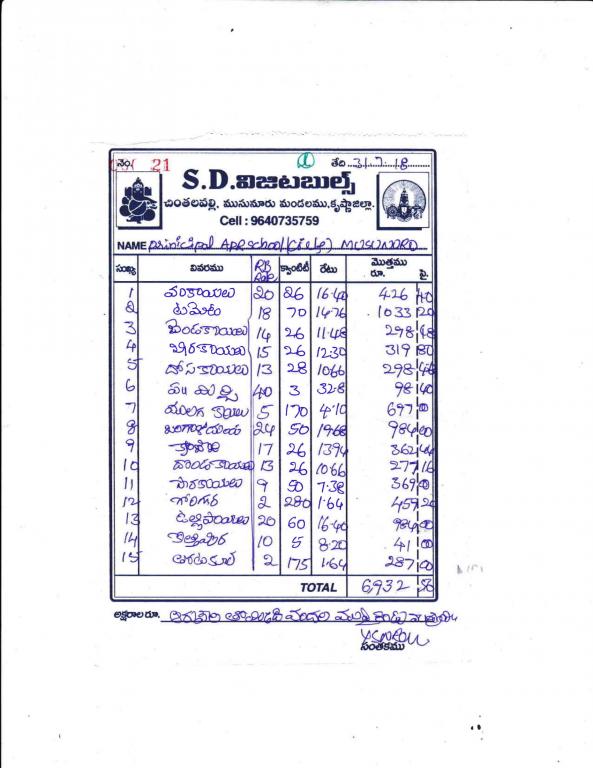 నెం. 21 1 తేది 31-7-18
S.D.విజిటబుల్స్
చింతలవల్లి, ముసునూరు మండలము,కృష్ణాజిల్లా.
Cell : 9640735759
NAME Principal APR School (Girls) MUSUNURU
సంఖ్య వివరము RB Rate క్వాంటిటీ రేటు మొత్తము రూ. పై.
1 వంకాయలు 20 26 16.40 426 40
2 టమోటా 18 70 14.76 1033 20
3 బెండకాయలు 14 26 11.48 298 48
4 బీరకాయలు 15 26 12.30 319 80
5 దోసకాయలు 13 28 10.66 298 48
6 ప॥ మిర్చి 40 3 32.8 98 40
7 ములగ కాయలు 5 170 4.10 697 00
8 బంగాళదుంప 24 50 19.68 984 00
9 17 26 13.94 362 44
10 దొండకాయలు 13 26 10.66 277 16
11 సొరకాయలు 9 50 7.38 369 00
12 గోంగూర 2 280 1.64 459 20
13 ఉల్లిపాయలు 20 60 16.40 984 00
14 కొత్తిమీర 10 5 8.20 41 00
15 తోటకూర 2 175 1.64 287 00
TOTAL 6,932 56
అక్షరాల రూ. ఆరువేల తొమ్మిది వందల ముప్పై రెండు
సంతకము